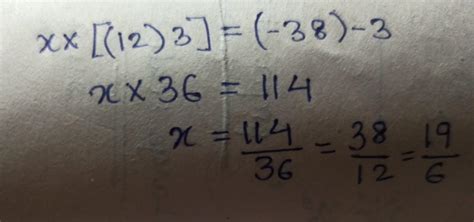 x×[(12)3]=(-38)-3
x×36=114
x=114/36=38/12=19/6